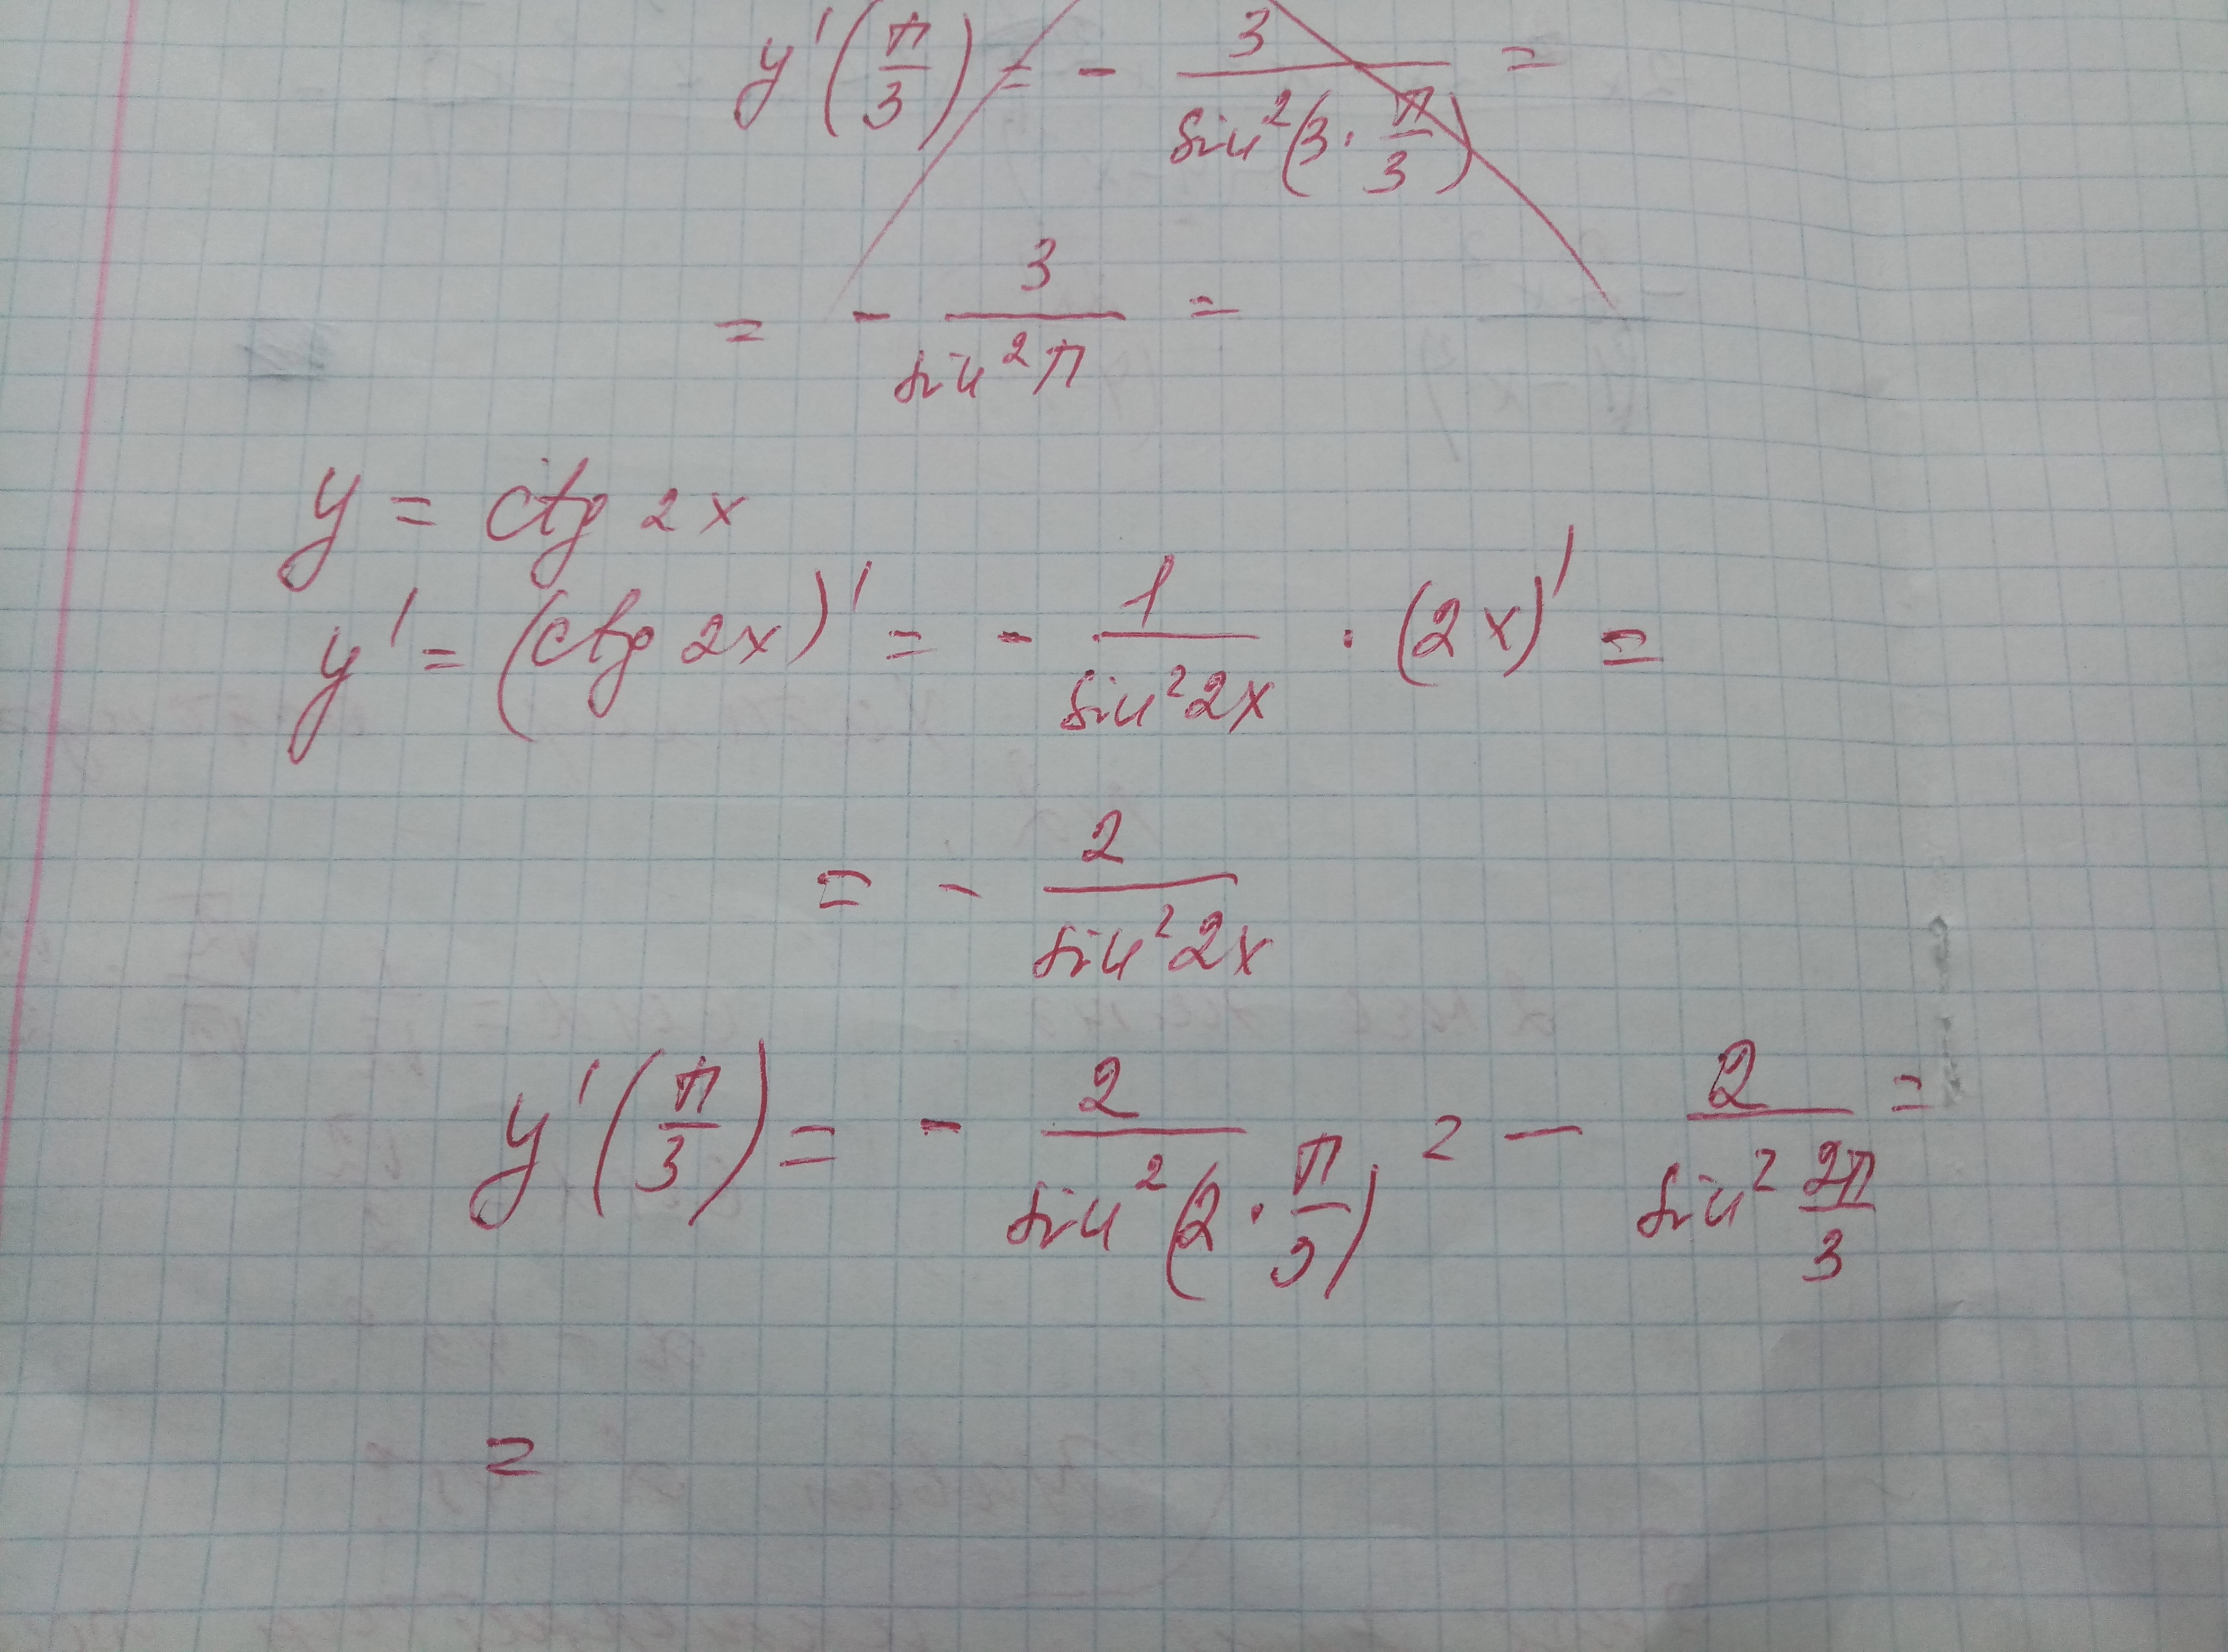 y'(π/3) = - 3/sin²(3·π/3) =
= - 3/sin²π =
y = ctg 2x
y' = (ctg 2x)' = - 1/sin²2x · (2x)' =
= - 2/sin²2x
y'(π/3) = - 2/sin²(2·π/3) = - 2/sin² 2π/3 =
=